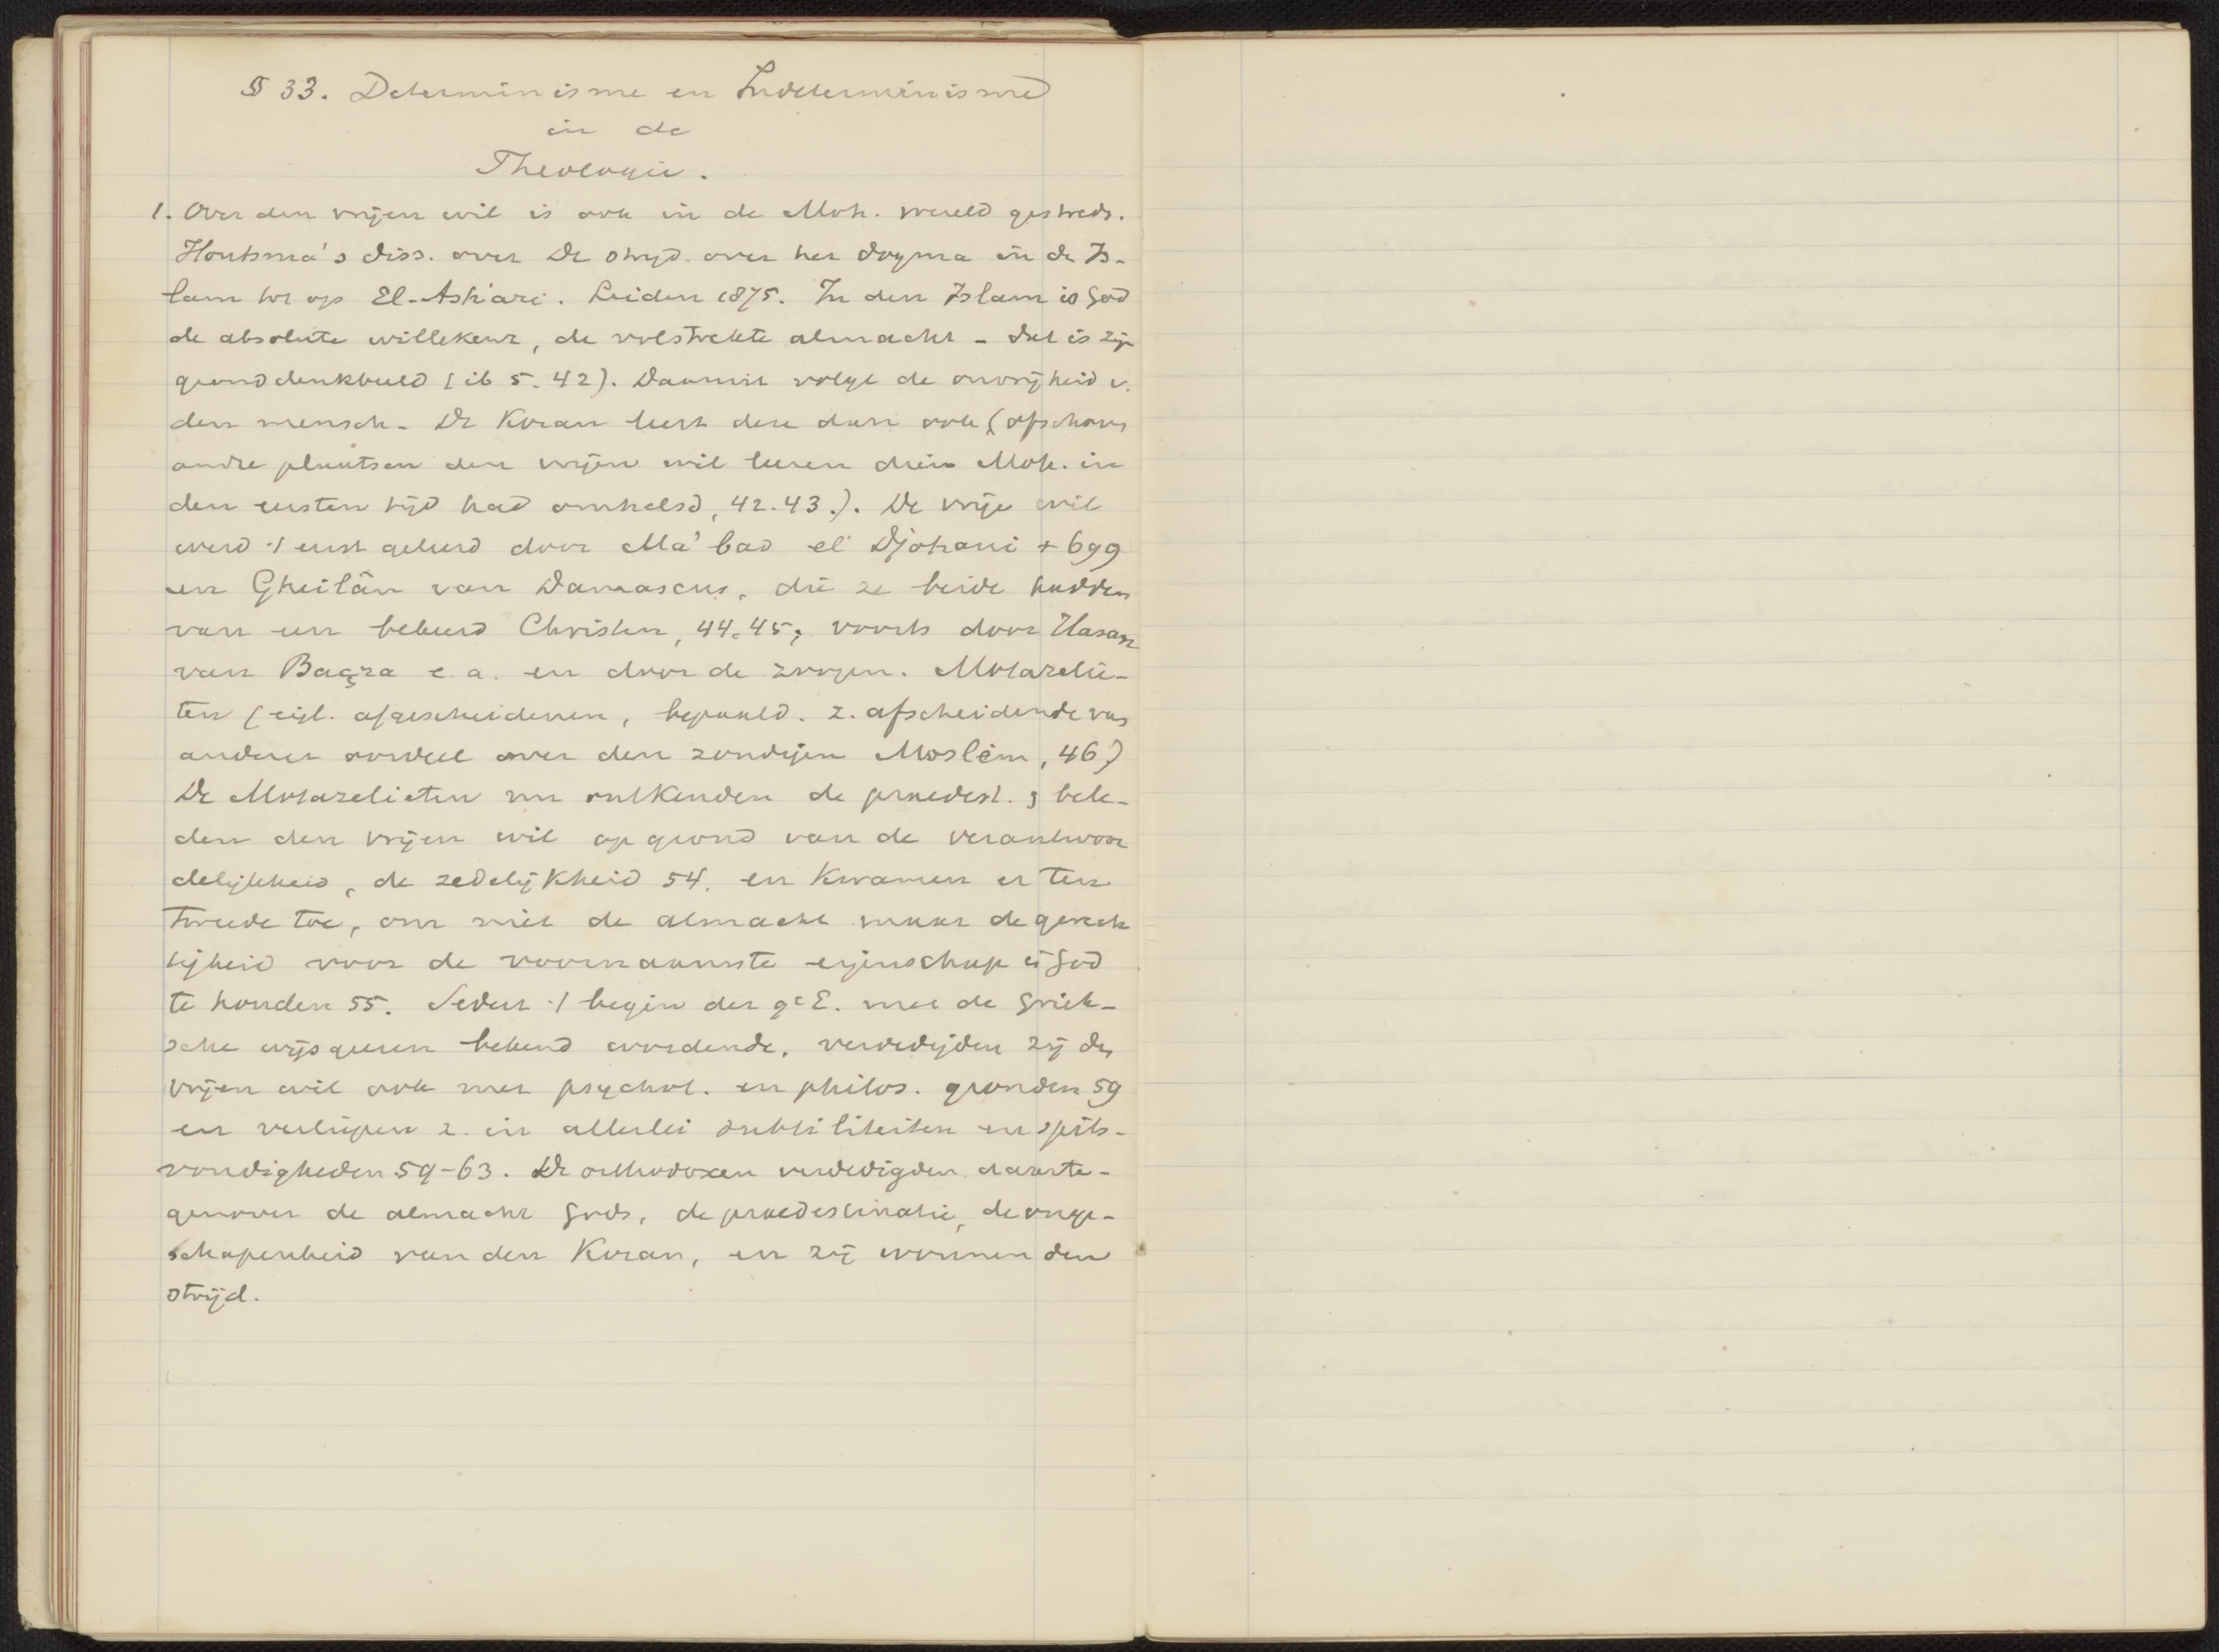 § 33. Determinisme en Indeterminisme
in de
Theologie.
1. Over den vrijen wil is ook in de Moh. wereld gestreden.
Houtsma's diss. over De strijd over het dogma in de Is-
lam tot op El-Ash'ari. Leiden 1875. In den Islam is God
de absolute willekeur, de volstrekte almacht - dat is zijn
gronddenkbeeld (ib 5. 42). Daaruit volgt de onvrijheid v.
den mensch. De Koran leert deze dan ook (ofschoon
andre plaatsen den vrijen wil leeren dien Moh. in
den eersten tijd had omhelsd, 42.43.). De vrije wil
werd 't eerst geleerd door Ma'bad el Djohani + 699
en Gheilân van Damascus, die ze beide hadden
van een bekeerd Christen, 44.45; voorts door Hasan
van Baçra e.a. en door de zoogen. Motazelie-
ten (eigl. afgescheidenen, bepaald. z. afscheidende van
anderer oordeel over den zondigen Moslêm, 46)
De Motazelieten nu ontkenden de praedest. & bele-
den den vrijen wil op grond van de verantwoor
delijkheid, de zedelijkheid 54, en kwamen er ten
tweede toe, om niet de almacht maar de gerech
tigheid voor de voornaamste eigenschap in God
te houden 55. Sedert 't begin der 9e E. met de Griek-
sche wijsgeeren bekend wordende, verdedigden zij den
vrijen wil ook met psychol. en philos. gronden 59
en verliepen z. in allerlei subtiliteiten en spits-
vondigheden 59-63. De orthodoxen verdedigden daarte-
genover de almacht Gods, de praedestinatie, de onge-
schapenheid van den Koran, en zij wonnen den
strijd.